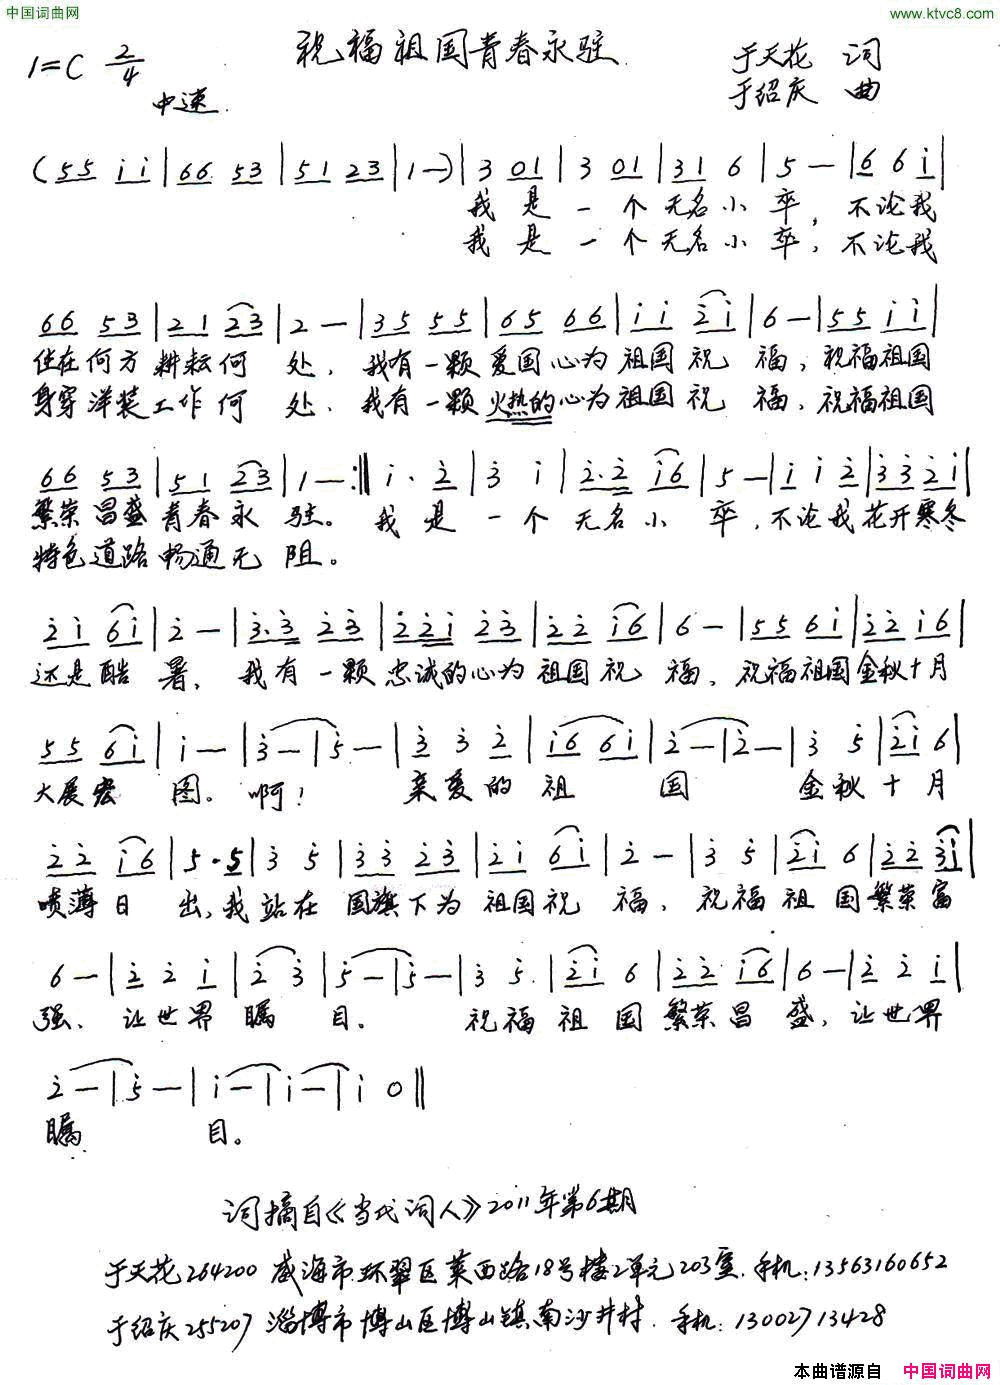 中国词曲网 www.ktvc8.com
祝福祖国青春永驻
1=C 2/4 于天花 词
中速 于绍庆 曲
(55 i i|66 53|51 23|1 —)|3 01|3 01|31 6|5 —|6 6 i|
我是一个无名小卒，不论我
我是一个无名小卒，不论我
66 53|21 23|2 —|35 55|65 66|i i 2̇i|6 —|55 i i|
住在何方耕耘何处，我有一颗爱国心为祖国祝福，祝福祖国
身穿洋装工作何处，我有一颗火热的心为祖国祝福，祝福祖国
66 53|51 23|1 —:‖i · 2̇|3̇ i|2̇·2̇ i6|5 —|i i 2̇|3̇3̇2̇i|
繁荣昌盛青春永驻。我是一个无名小卒，不论我花开寒冬
特色道路畅通无阻。
2̇i 6i|2̇ —|3̇·3̇ 2̇3̇|2̇2̇i 2̇3̇|2̇2̇ i6|6 —|55 6i|2̇2̇ i6|
还是酷暑，我有一颗忠诚的心为祖国祝福，祝福祖国金秋十月
55 6i|i —|3̇ —|5̇ —|3̇ 3̇ 2̇|i6 6i|2̇ —|2̇ —|3̇ 5̇|2̇i 6|
大展宏图。啊！亲爱的祖国金秋十月
2̇2̇ i6|5·5|3̇ 5̇|3̇3̇ 2̇3̇|2̇i 6i|2̇ —|3̇ 5̇|2̇i 6|2̇2̇ 3̇i|
喷薄日出，我站在国旗下为祖国祝福，祝福祖国繁荣富
6 —|2̇ 2̇ i|2̇ 3̇|5̇ —|5̇ —|3̇ 5̇|2̇i 6|2̇2̇ i6|6 —|2̇ 2̇ i|
强，让世界瞩目。祝福祖国繁荣昌盛，让世界
2̇ —|5̇ —|i —|i —|i 0‖
瞩目。
词摘自《当代词人》2011年第6期
于天花264200 威海市环翠区莱西路18号楼2单元203室.手机:13563160652
于绍庆255207 淄博市博山区博山镇南沙井村.手机:13002713428
本曲谱源自 中国词曲网